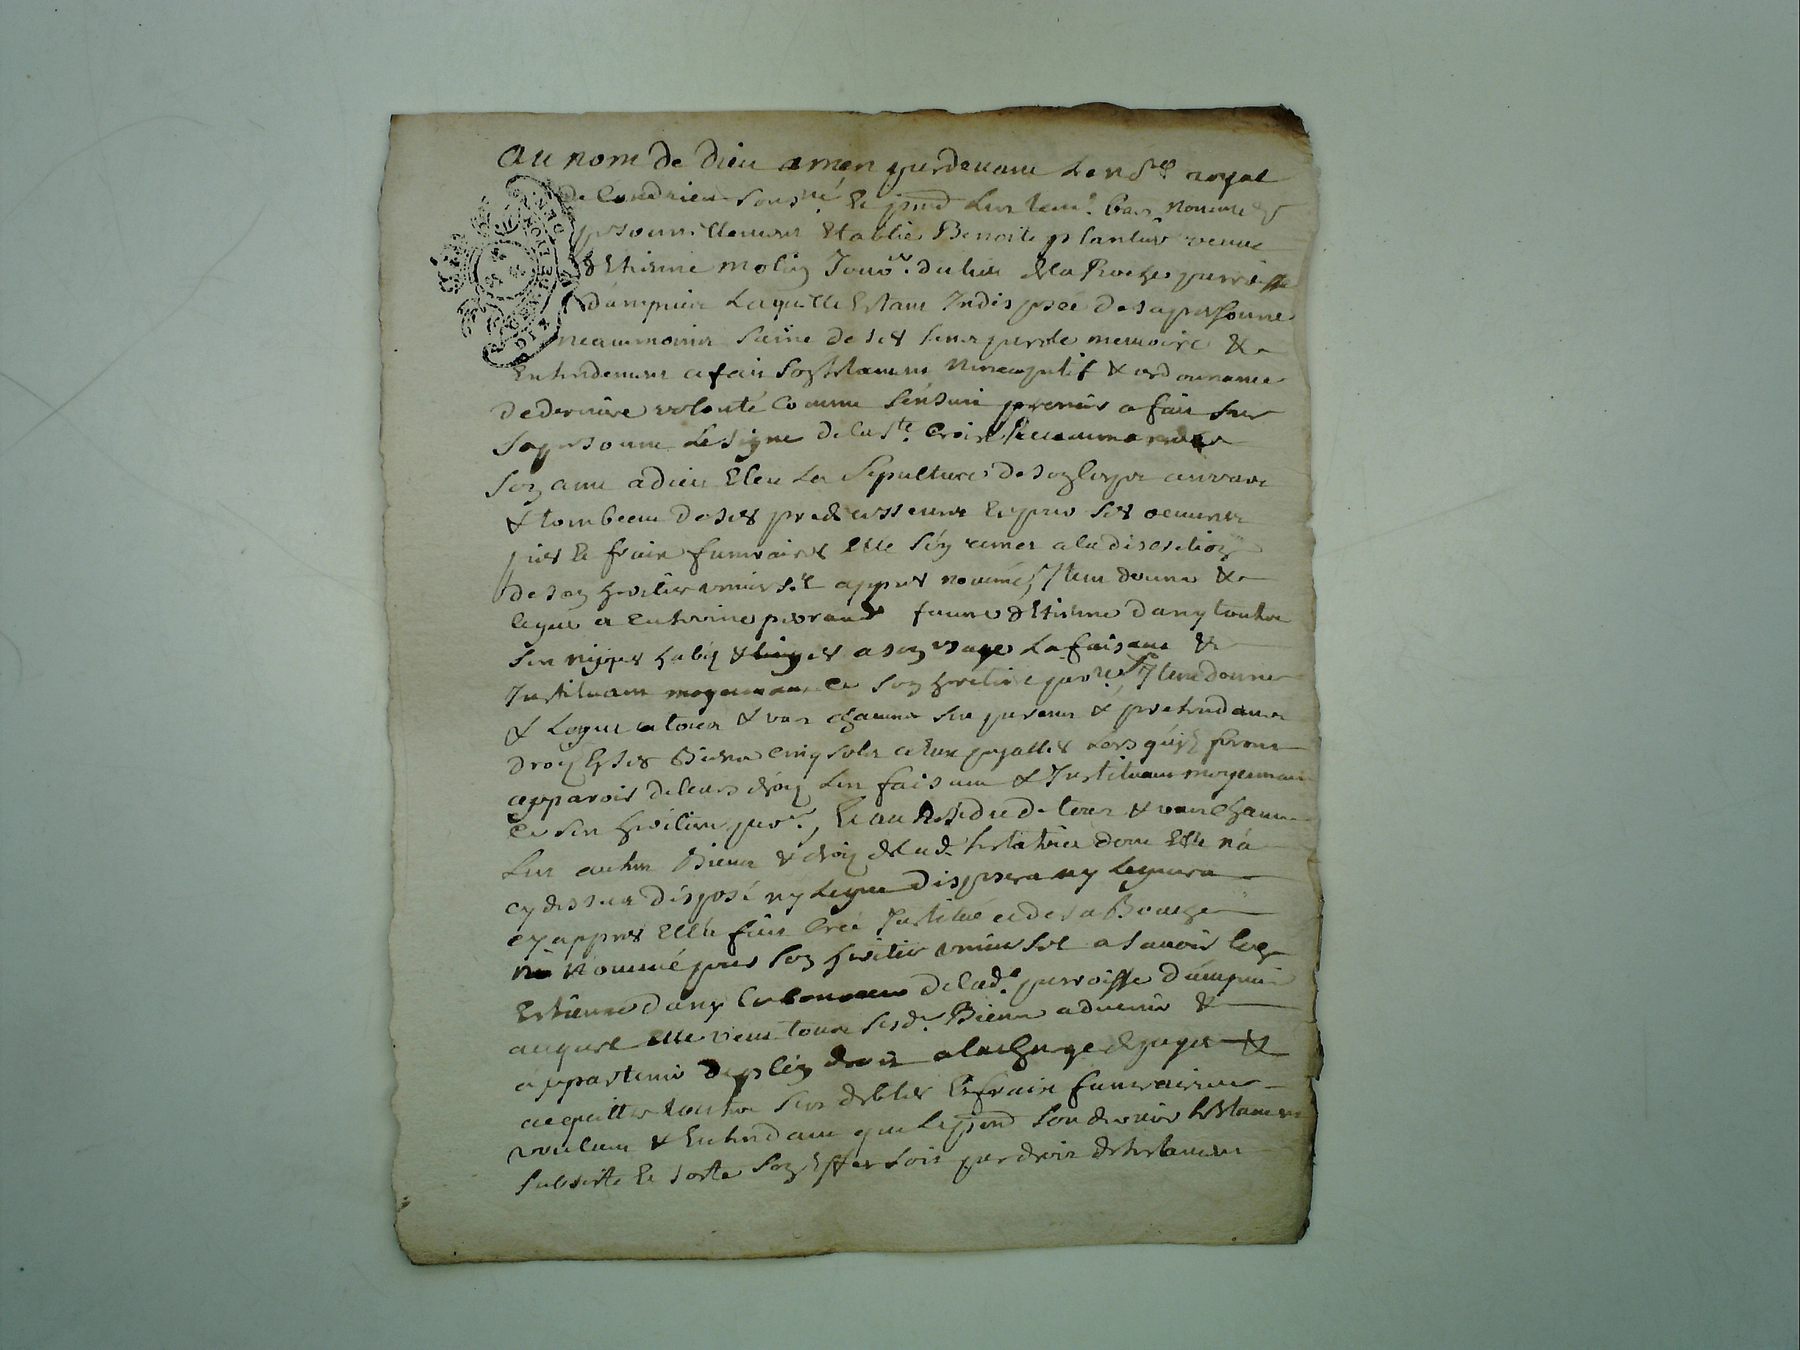 au nom de dieu amen pardevant le no.re royal
de Condrieu sousné et presnd les tem. bas nommes
personnellement Etablie Benoite plantier veuve
d'Ethienne molin Jour. du lieu de la Roche parroisse
d'ampuis Laquelle Estant Indisposee de sa personne
neaumoins saine de ses sens parole memoire &
Entendement a fait son testament nuncupatif & ordonnance
de derniere volonté Comme s'ensuit premier a fait sur
sa personne le signe de la ste. Croix Recommandé
son ame a dieu Eleu la sepulture de son corps au vase
& tombeau de ses predecesseurs Et pour ses oeuvres
pies Et frais funeraires Elle s'en remet a la discretion
de son heritier universel appres nommé, Item donne &
legue a Catherine femme d'Etienne dany toutes
ses nippes habis & linges a son usage La faisant &
Instituant moyennant ce son heritiere par.re, Item donne
& Legue a tous & un chacuns ses parens & pretendans
droit Es ses Biens cinq sols a Eux payables Lors qu'ils feront
apparois de leurs droits Les faisant & Instituant moyennant
ce ses heritiers par.rs, Et au Residu de tous & uns Chacuns
Les autres Biens & droits de lad. testatrice dont Elle n'a
cy dessus disposé ny legué disposera ny leguera
cy appres Elle a fait Créé Institué et de sa Bouche
nommé pour son heritier universel a savoir led.
Estienne dany de lad. parroisse d'ampuis
auquel elle veut tous sesd. Biens advenir &
appartenir de plein droit a la charge de payer &
acquitter toutes ses debtes Et frais funeraires
voulant & Entendant que le presnd son dernier testament
subsiste Et sorte son Effet soit par droit de testament